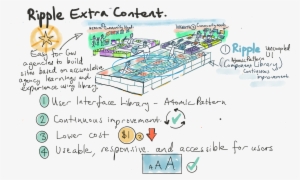 Ripple Extra Content.
Easy for Gov
agencies to build
sites based on accumulative
agency learnings and
experience using library
Ripple
UI
Atomic Pattern
(Component Library)
Continuous
Improvement
1 User Interface Library - Atomic Pattern
2 Continuous improvement
3 Lower cost $1
4 Useable, responsive and accessible for users
AAA